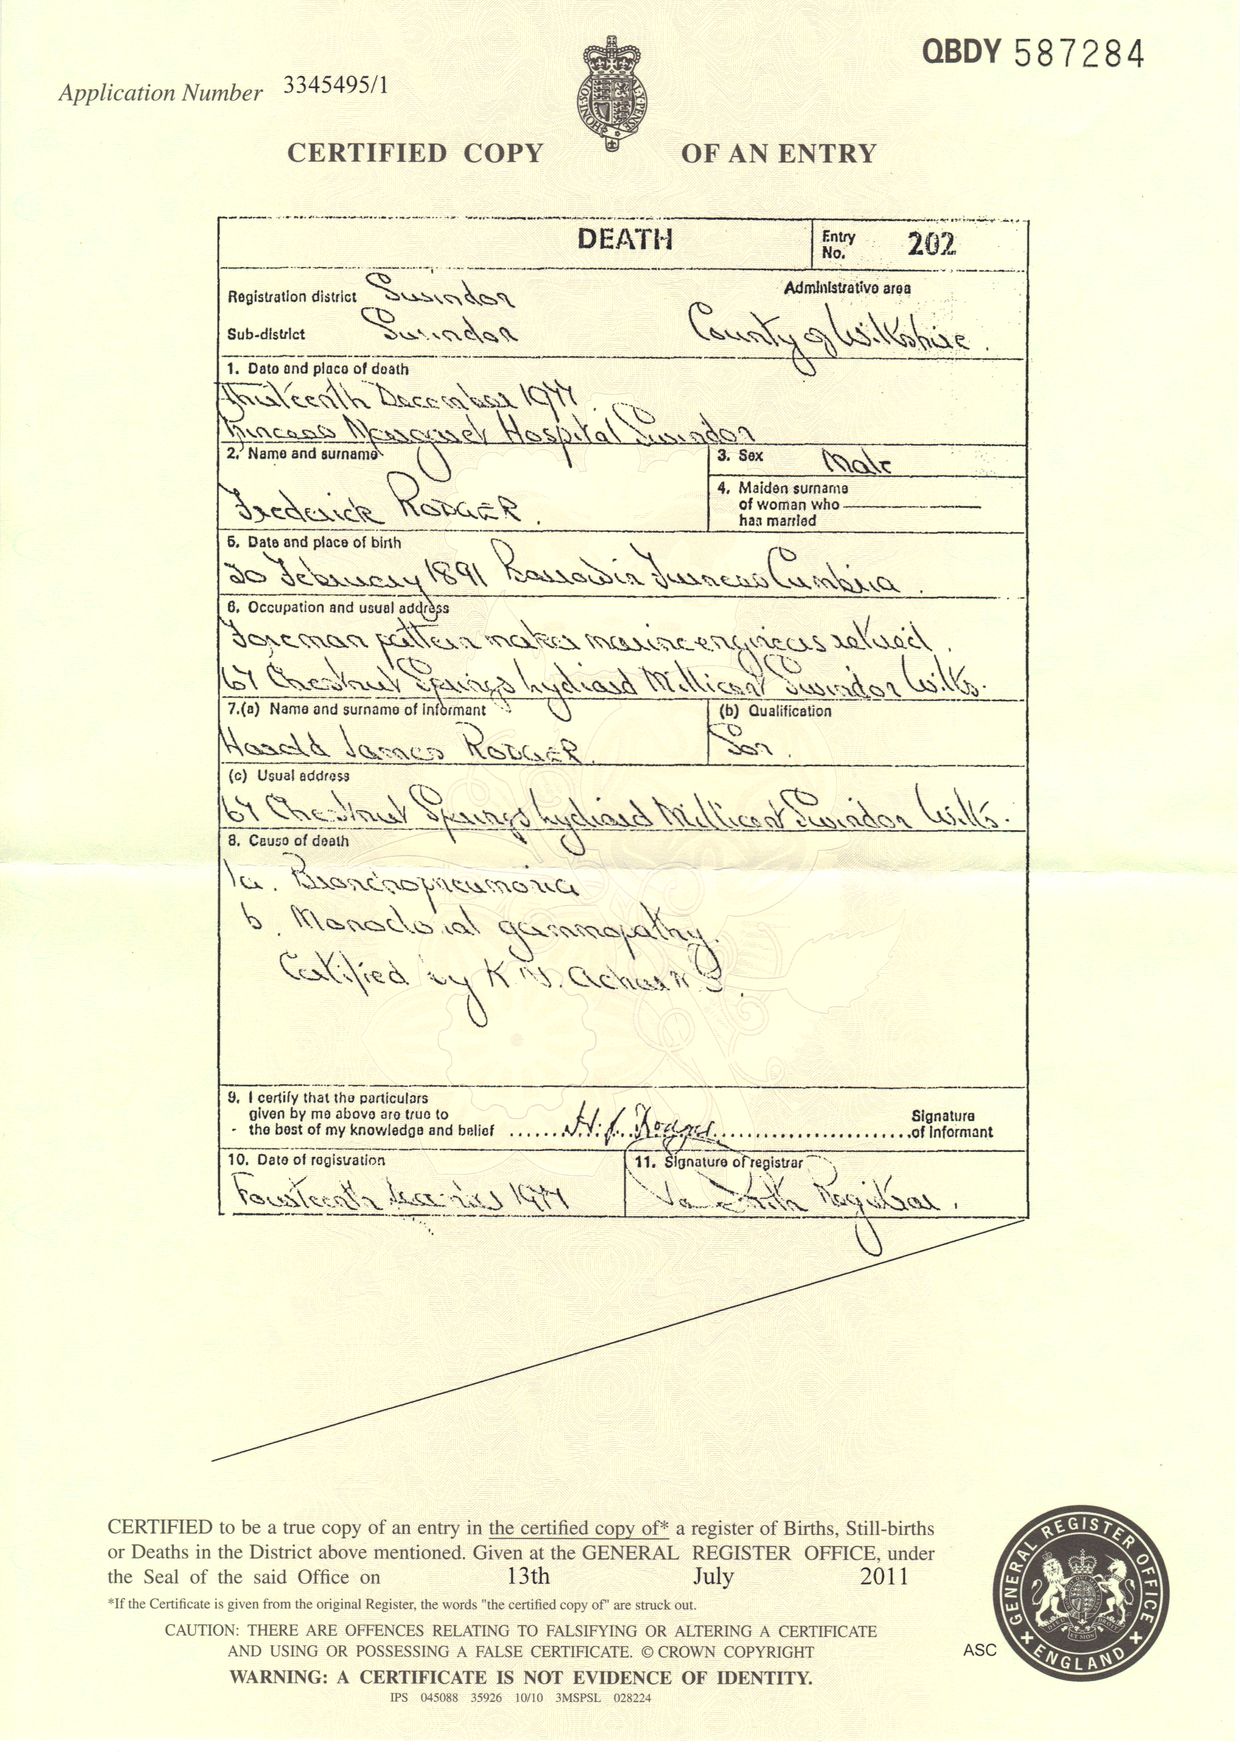 QBDY 587284
Application Number 3345495/1
CERTIFIED COPY OF AN ENTRY
DEATH
Entry No. 202
Registration district Swindon
Administrative area
Sub-district Swindon
County of Wiltshire.
1. Date and place of death
Thirteenth December 1977
Princess Margaret Hospital Swindon
2. Name and surname
Frederick RODGER.
3. Sex Male
4. Maiden surname
of woman who
has married
5. Date and place of birth
20 February 1891 Barrow in Furness Cumbria.
6. Occupation and usual address
Foreman pattern maker marine engineers retired.
67 Chestnut Springs Lydiard Millicent Swindon Wilts.
7.(a) Name and surname of informant
Harold James RODGER.
(b) Qualification
Son.
(c) Usual address
67 Chestnut Springs Lydiard Millicent Swindon Wilts.
8. Cause of death
1a. Bronchopneumonia
b. Monoclonal gammopathy.
Certified by K
9. I certify that the particulars
given by me above are true to
the best of my knowledge and belief H.J. Rodger Signature of informant
10. Date of registration
Fourteenth December 1977
11. Signature of registrar
Registrar.
CERTIFIED to be a true copy of an entry in the certified copy of* a register of Births, Still-births
or Deaths in the District above mentioned. Given at the GENERAL REGISTER OFFICE, under
the Seal of the said Office on 13th July 2011
*If the Certificate is given from the original Register, the words "the certified copy of" are struck out.
CAUTION: THERE ARE OFFENCES RELATING TO FALSIFYING OR ALTERING A CERTIFICATE
AND USING OR POSSESSING A FALSE CERTIFICATE. © CROWN COPYRIGHT
ASC
WARNING: A CERTIFICATE IS NOT EVIDENCE OF IDENTITY.
IPS 045088 35926 10/10 3MSPSL 028224
GENERAL REGISTER OFFICE
ENGLAND